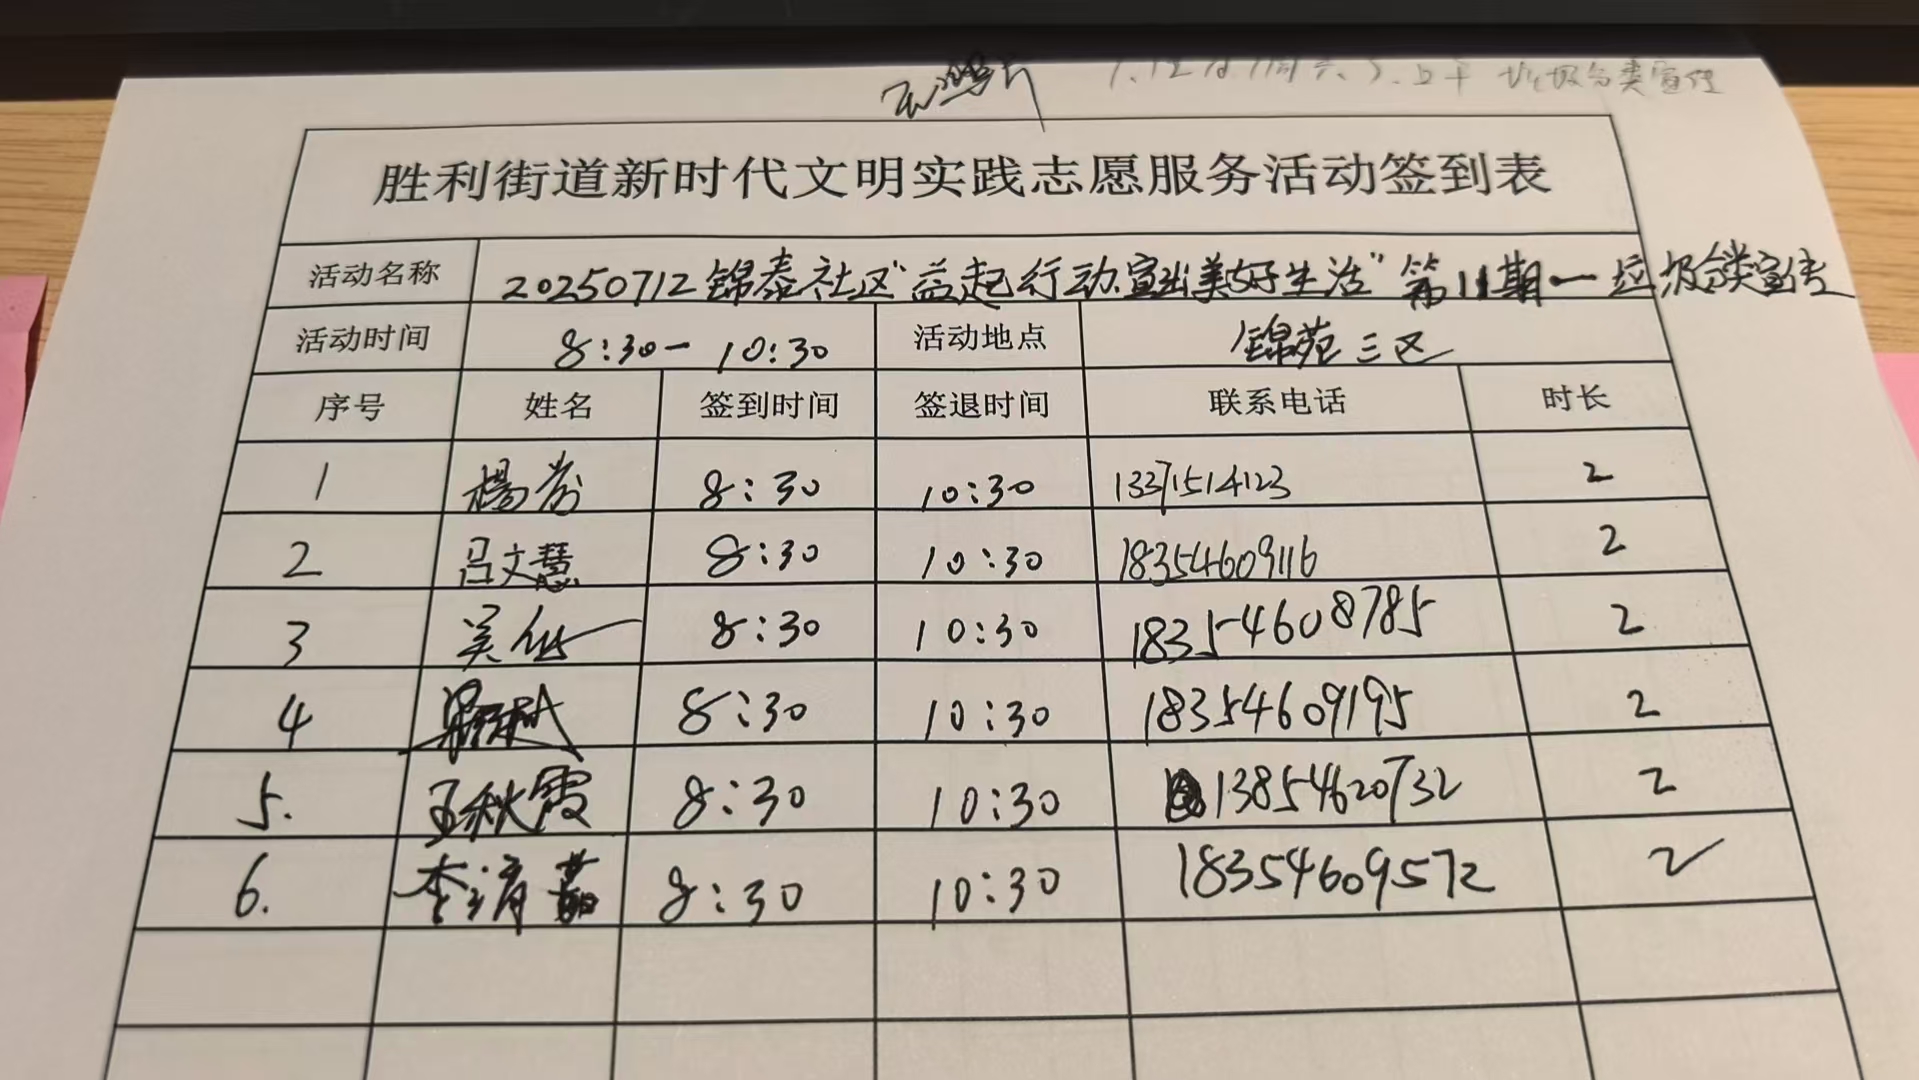 垃圾分类宣传
胜利街道新时代文明实践志愿服务活动签到表
活动名称 20250712锦泰社区“益起行动宣出美好生活”第11期一垃圾分类宣传
活动时间 8:30-10:30 活动地点 锦苑三区
序号 姓名 签到时间 签退时间 联系电话 时长
1 杨 8:30 10:30 13371514123 2
2 吕文慧 8:30 10:30 18354609116 2
3 吴 8:30 10:30 18354608785 2
4 8:30 10:30 18354609195 2
5. 王秋霞 8:30 10:30 13854620732 2
6. 李清 8:30 10:30 18354609572 2